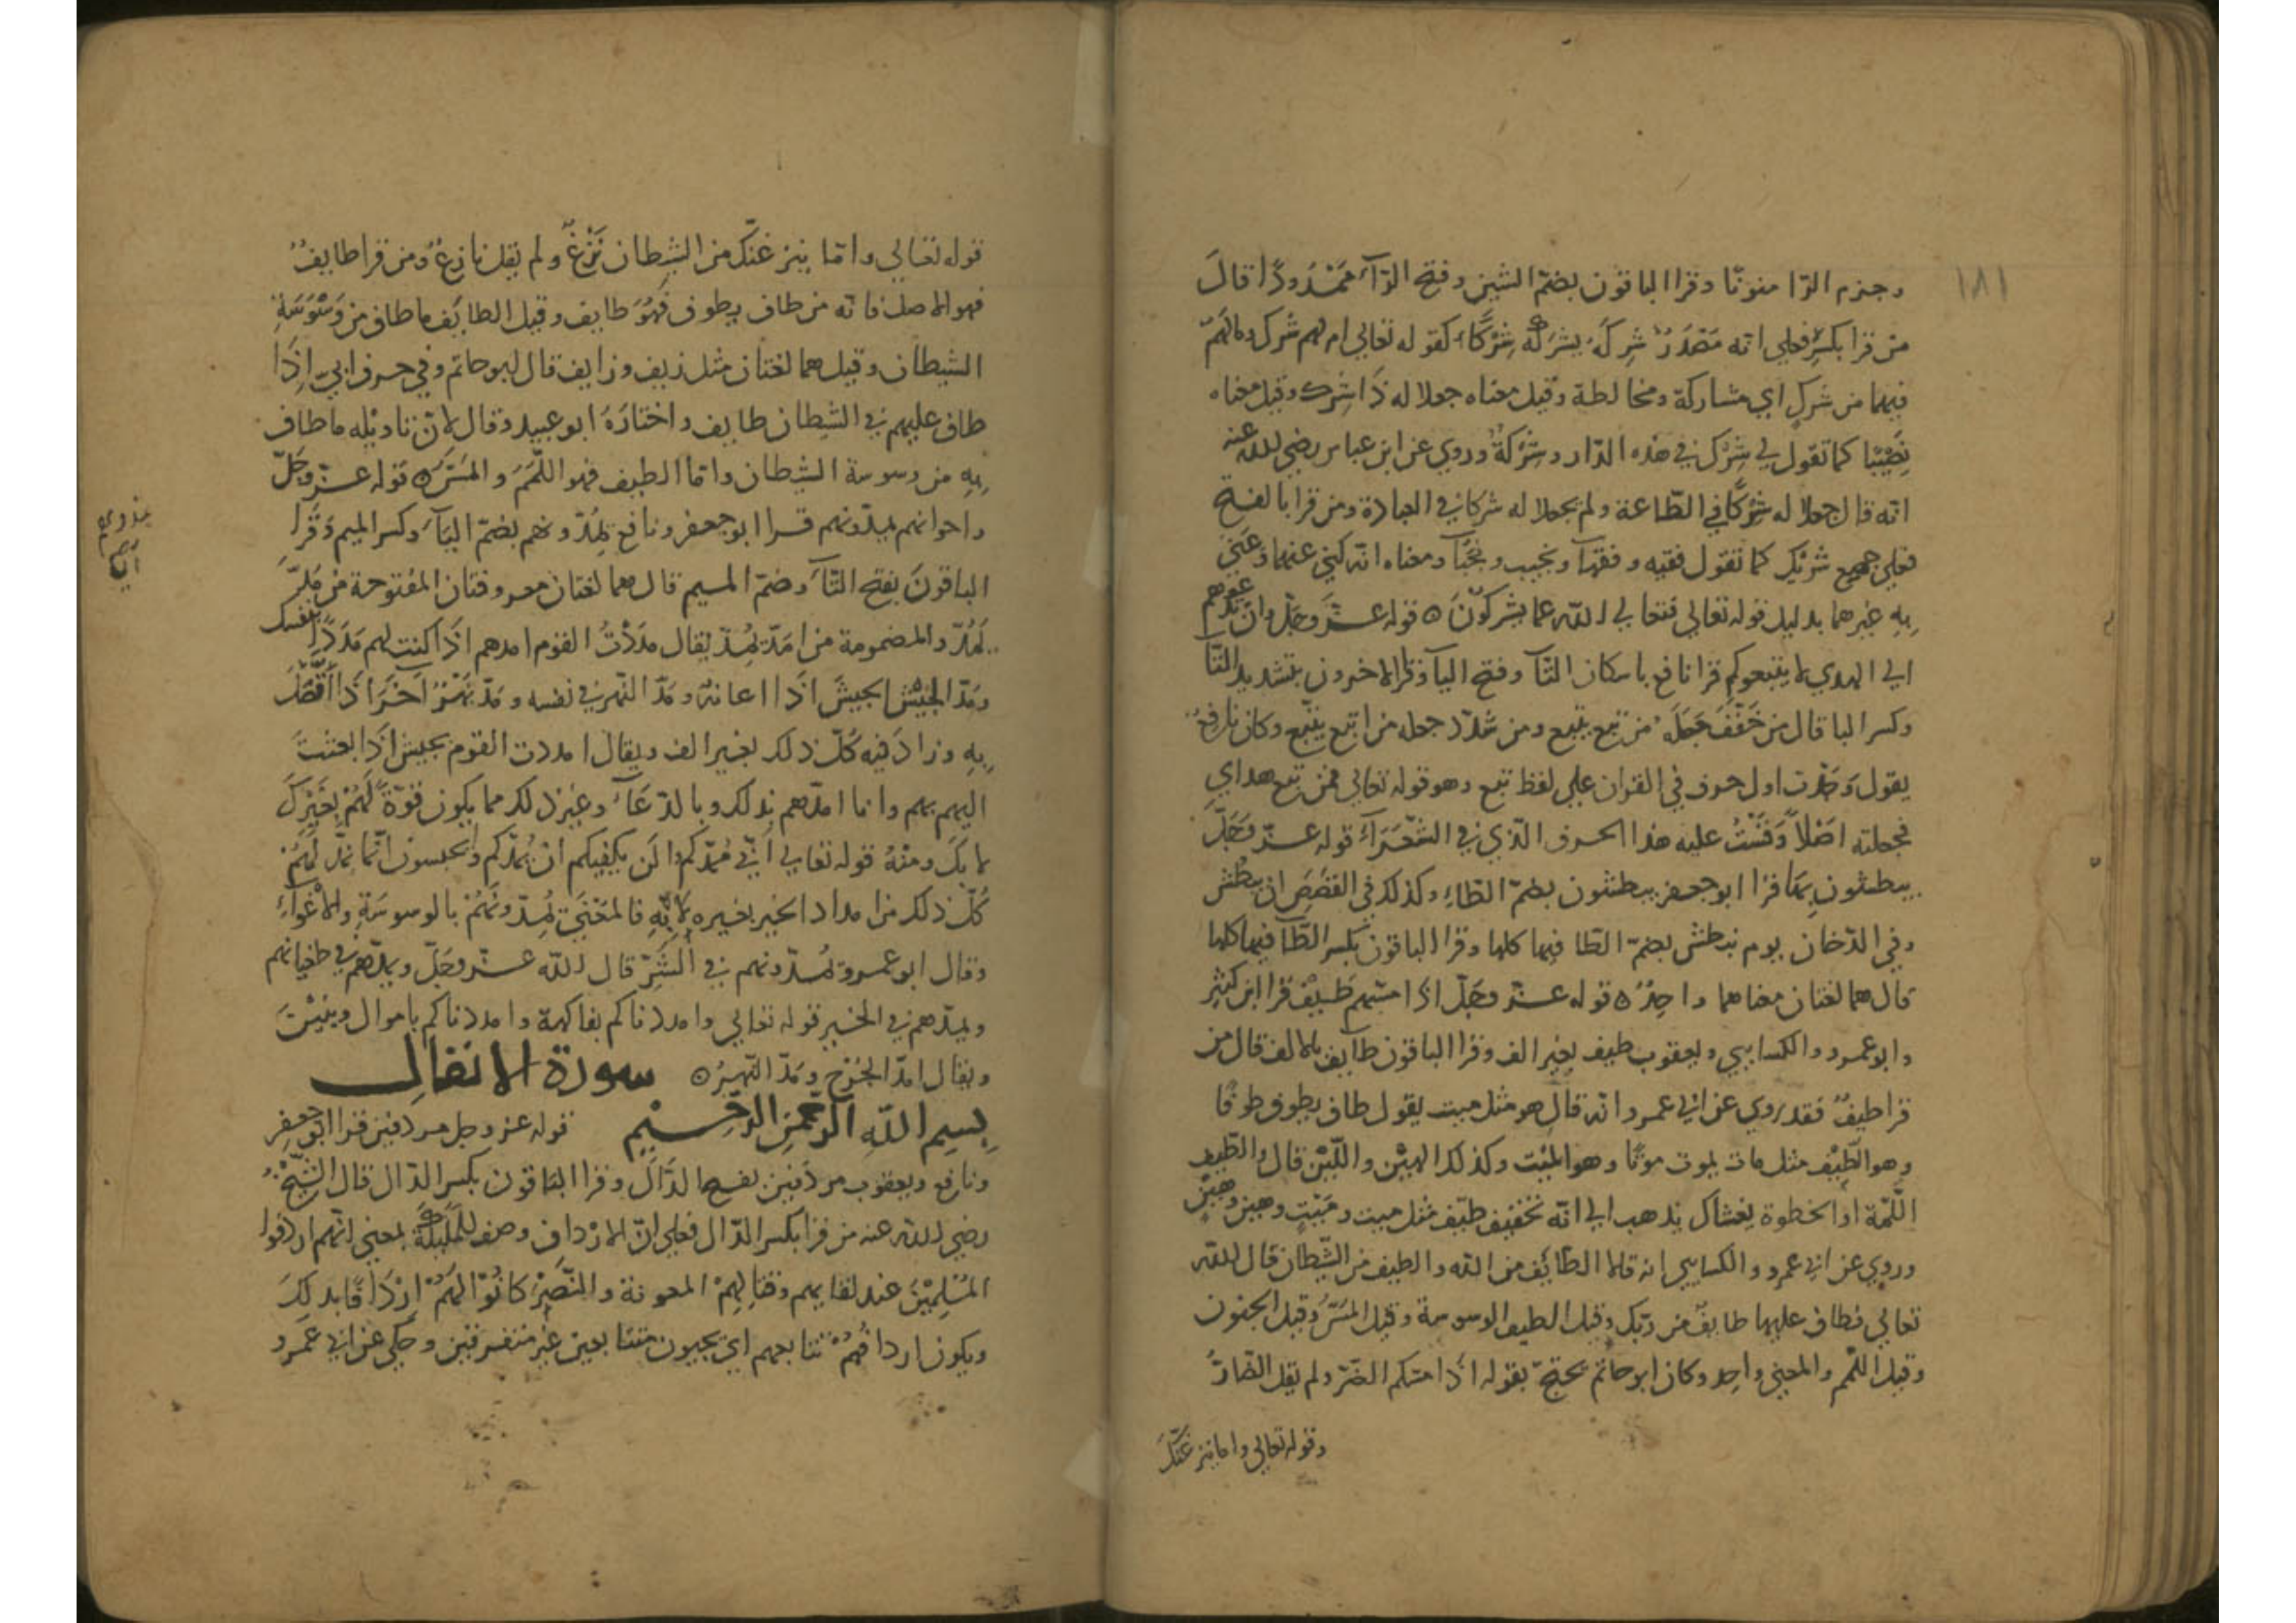 ١٨١
وجزم الرّا منونّا وقرا الباقون بضمّ الشين وفتح الرّآء ممْدُودًا قالَ
من قرا بكسرٍ فعلى انّه مَصْدَرُ شرِكَهُ يشرَكُهُ شِرْكًا كقوله تعالى ام لهم شرك ومالَهُمْ
فيهما من شركٍ اي مشاركة ومخالطة وقيل معناه جعلا له ذَا شِرك وقيل معناه
نَصِيْبًا كما تقول لي شِرْك في هذه الدّار وشِرْكةٌ وروي عن ابن عباس رضي الله عنه
انّه قال جعلا له شِرْكًا في الطّاعة ولم يجعلا له شركا في العبادة ومن قرا بالفتح
فعلى جميع شرْيكٍ كما تقول فقيه وفقهآ ونجيب ونُجُبآ ومعناه انّه كنى عنهما وعَنى
بِهِ غيرهما بدليل قوله تعالى فتعالى الله عما يشركوْنَ ٥ قوله عزّ وجَلّ وان تدعوهم
الى الهدى لا يتبعوكم قرا نافع باسكان التّآ وفتح البآ وقرا الاخرون بتشديد التّآ
وكسر البا قال من خَفّفَ جَعَلَهُ من تبع يتبع ومن شدّد جعله من اتبع يتّبع وكان نافعٌ
يقول وَجَدْت اول حرف في القران على لفظ تبع وهو قوله تعالى فمن تبع هداي
فجعلته اصْلاً وَقَسْتُ عليه هذا الحرف الّذي في الشّعَرَآء قوله عزّ وَجَلّ
يبطشون بِهَا قرا ابو جعفر يبطشون بضمّ الطّاءِ وكذلك في القصَصِ ان يبطش
وفي الدّخان يوم نبطش بضمّ الطّا فيها كلها وقرا الباقون بكسر الطّآ فيها كلها
قال هما لغتان معناهما واحِدُ ٥ قوله عزّ وجَلّ اذا مسّهم طَيْفٌ قرا ابن كثِيْر
وابو عمرو والكسايي ويعقوب طيف بغير الف وقرا الباقون طآيف بالالف قال من
قرا طيفٌ فقد روي عن ابي عمرو انه قال هو مثل ميت يقول طاف يطوف طوفًا
وهو الطَّيْف مثل مات يموت موتًا وهو الميْت وكذلك الهيْن واللّيْن قال والطّيف
اللّمّة او الخطوة يغشاك يذهب الى انّه تخفيف طيّف مثل ميت ومَيّتٍ وهين وهَيّنٍ
وروي عن ابي عمرو والكسايي انه قالا الطّائِف من الله والطيف من الشّيطان قال الله
تعالى فطاف عليها طايفٌ من ربّك وقيل الطيف الوسوسة وقيل المَسّ وقيل الجنون
وقيل اللّمم والمعنى واحد وكان ابو حاتم يحتجّ بقوله اذا مسّكم الضّرّ ولم يقل الضّارُّ
وقوله تعالى واما ينزغنّك
قوله تعالى وامّا ينزغنّك من الشيطان نَزْغٌ ولم يقل نازغٌ ومن قرا طايفٌ
فهو الاصل فانّه من طاف يطوف فهُوَ طايف وقيل الطائِف ما طاف من وَسْوَسَةِ
الشيطان وقيل هما لغتان مثل زيف وزايف قال ابو حاتم وفي حرف ابيّ اِذَا
طاف عليهم في الشيطان طايف واختارَهُ ابو عبيد وقال لانّ تاويْله ما طاف
بِهِ من وسوسة الشيطان وامّا الطيف فهو اللّمَمَ والمسّ ٥ قوله عزّ وجَلّ
واخوانهم يمدّونهم قرا ابو جعفر ونافع يُمدّونهم بضمّ اليآء وكسر الميم وقَرا
الباقونَ بفتح التّآء وضمّ الميم قال هما لغتان معروفتان المفتوحة من مَدّ
يَمُدّ والمضمومة من امَدّ يُمِدّ يقال مدَدْتُ القوم امدهم اذَا كنت لهم مَدَدًا بنفسك
ومَدّ الجيْش الجيشَ اذَا اعانه ومَدّ النّهر في نفسه ومَدّ نَهْرٌ آخَرَ اذَا اتّصَلَ
بِهِ وزادَ فيه كُلّ ذلك بغير الف ويقال امددت القوم بجيش اذَا بعثتَ
اليهم بهم وانا امدّهم بذلك وبالدّعَآء وغير ذلك مما يكون قوّةً لَهُمْ بغَيْركَ
لا بكَ ومنْهُ قوله تعالى أنّي مُمدّكم والَن يكفيكم ان يُمدّكم وايحسبون انّما نمدّهُم
كُلّ ذلك من امداد الخير بغيره لا بِهِ فالمَعْنى يُمدّونَهُمْ بالوسوسَةِ والاغْوآءِ
وقال ابو عمرو يُمدّونهم في الشَرّ قال الله عزّ وجَلّ ويمدّهُم في طغيانهم
ويمدّهم في الخير قوله تعالى وامددناكم بفاكهة وامددناكم باموال وبنيْنَ
ويقال امدّ الجُرْح ومَدّ النّهرُ ٥ سورة الانفال
بسِم الله الرّحمن الرّحيْم قوله عز وجل مردفين قرا ابو جعفر
ونافع ويعقوب مردَفين بفتح الدّالَ وقرا الباقون بكسر الدّال قال الشّيْخُ
رضي الله عنه من قرا بكسر الدّال فعلى انّ الارْداف وصف للمَلئِكَةِ بمعنى انّهم اردفوا
المُسْلِمِيْنَ عند لقايهم وقتالِهِمْ المعونة والنّصْرَ كانُوْا لَهُمْ ارْدَافًا بذلِكَ
ويكون اردافُهُمْ تتابعهم اي يجيون متتابعين غير متفرقين وحكي عن ابي عمرو